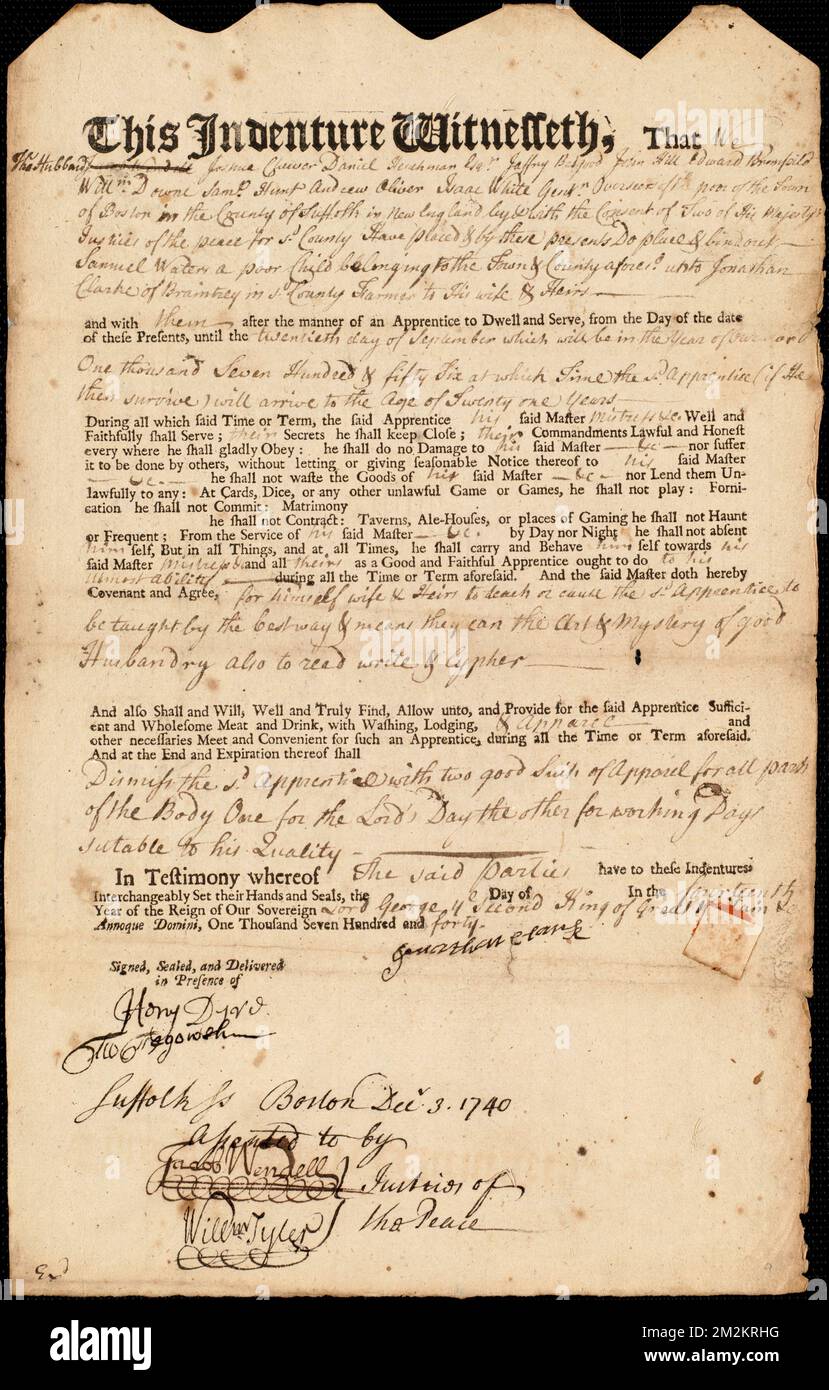 This Indenture Witnesseth, That We
Thos. Hubbard Joshua Daniel Henchman Esqr. John Hill Edward Bromfeild
Willm. Downe Saml. Hunt Andrew Oliver Isaac White Gentn. Overseers of the poor of the Town
of Boston in the County of Suffolk in New England by & with the Consent of Two of His Majestys
Justices of the peace for sd. County Have placed & by these presents Do place & bind out
Samuel Waters a poor Child belonging to the Town & County aforesd. unto Jonathan
Clarke of Braintrey in sd. County Farmer to His wife & Heirs
and with them after the manner of an Apprentice to Dwell and Serve, from the Day of the date
of these Presents, until the twentieth day of September which will be in the Year of our Lord
One thousand Seven Hundred & fifty Six at which Time the sd. Apprentice (if He
then survive) will arrive to the Age of Twenty one Years
During all which said Time or Term, the said Apprentice his said Master Mistress &c. Well and
Faithfully shall Serve; their Secrets he shall keep Close; their Commandments Lawful and Honest
every where he shall gladly Obey: he shall do no Damage to his said Master &c nor suffer
it to be done by others, without letting or giving seasonable Notice thereof to his said Master
&c. he shall not waste the Goods of his said Master &c nor Lend them Un-
lawfully to any: At Cards, Dice, or any other unlawful Game or Games, he shall not play: Forni-
cation he shall not Commit: Matrimony
he shall not Contract: Taverns, Ale-Houses, or places of Gaming he shall not Haunt
or Frequent; From the Service of his said Master &c. by Day nor Night he shall not absent
him self, But in all Things, and at all Times, he shall carry and Behave him self towards his
said Master Mistress and all theirs as a Good and Faithful Apprentice ought to do to his
utmost ability during all the Time or Term aforesaid. And the said Master doth hereby
Covenant and Agree, for himself wife & Heirs to teach or cause the sd. Apprentice to
be taught by the best way & means they can the Art & Mystery of good
Husbandry also to read write & Cypher
And also Shall and Will, Well and Truly Find, Allow unto, and Provide for the said Apprentice Suffici-
ent and Wholesome Meat and Drink, with Washing, Lodging, & Apparel and
other necessaries Meet and Convenient for such an Apprentice, during all the Time or Term aforesaid.
And at the End and Expiration thereof shall
Dismiss the sd. Apprentice with two good Suits of Apparel for all parts
of the Body One for the Lord's Day the other for working Days
sutable to his Quality
In Testimony whereof The said Parties have to these Indentures
Interchangeably Set their Hands and Seals, the Day of In the fourteenth
Year of the Reign of Our Sovereign Lord George ye Second King of Great Britain &c
Annoque Domini, One Thousand Seven Hundred and forty
Jonathan Clark
Signed, Sealed, and Delivered
in Presence of
Suffolk ss Boston Decr. 3. 1740
Assented to by
Jacob Wendell
Justices of
Willm Tyler
the Peace
alamy
alamy
Image ID: 2M2KRHG
www.alamy.com